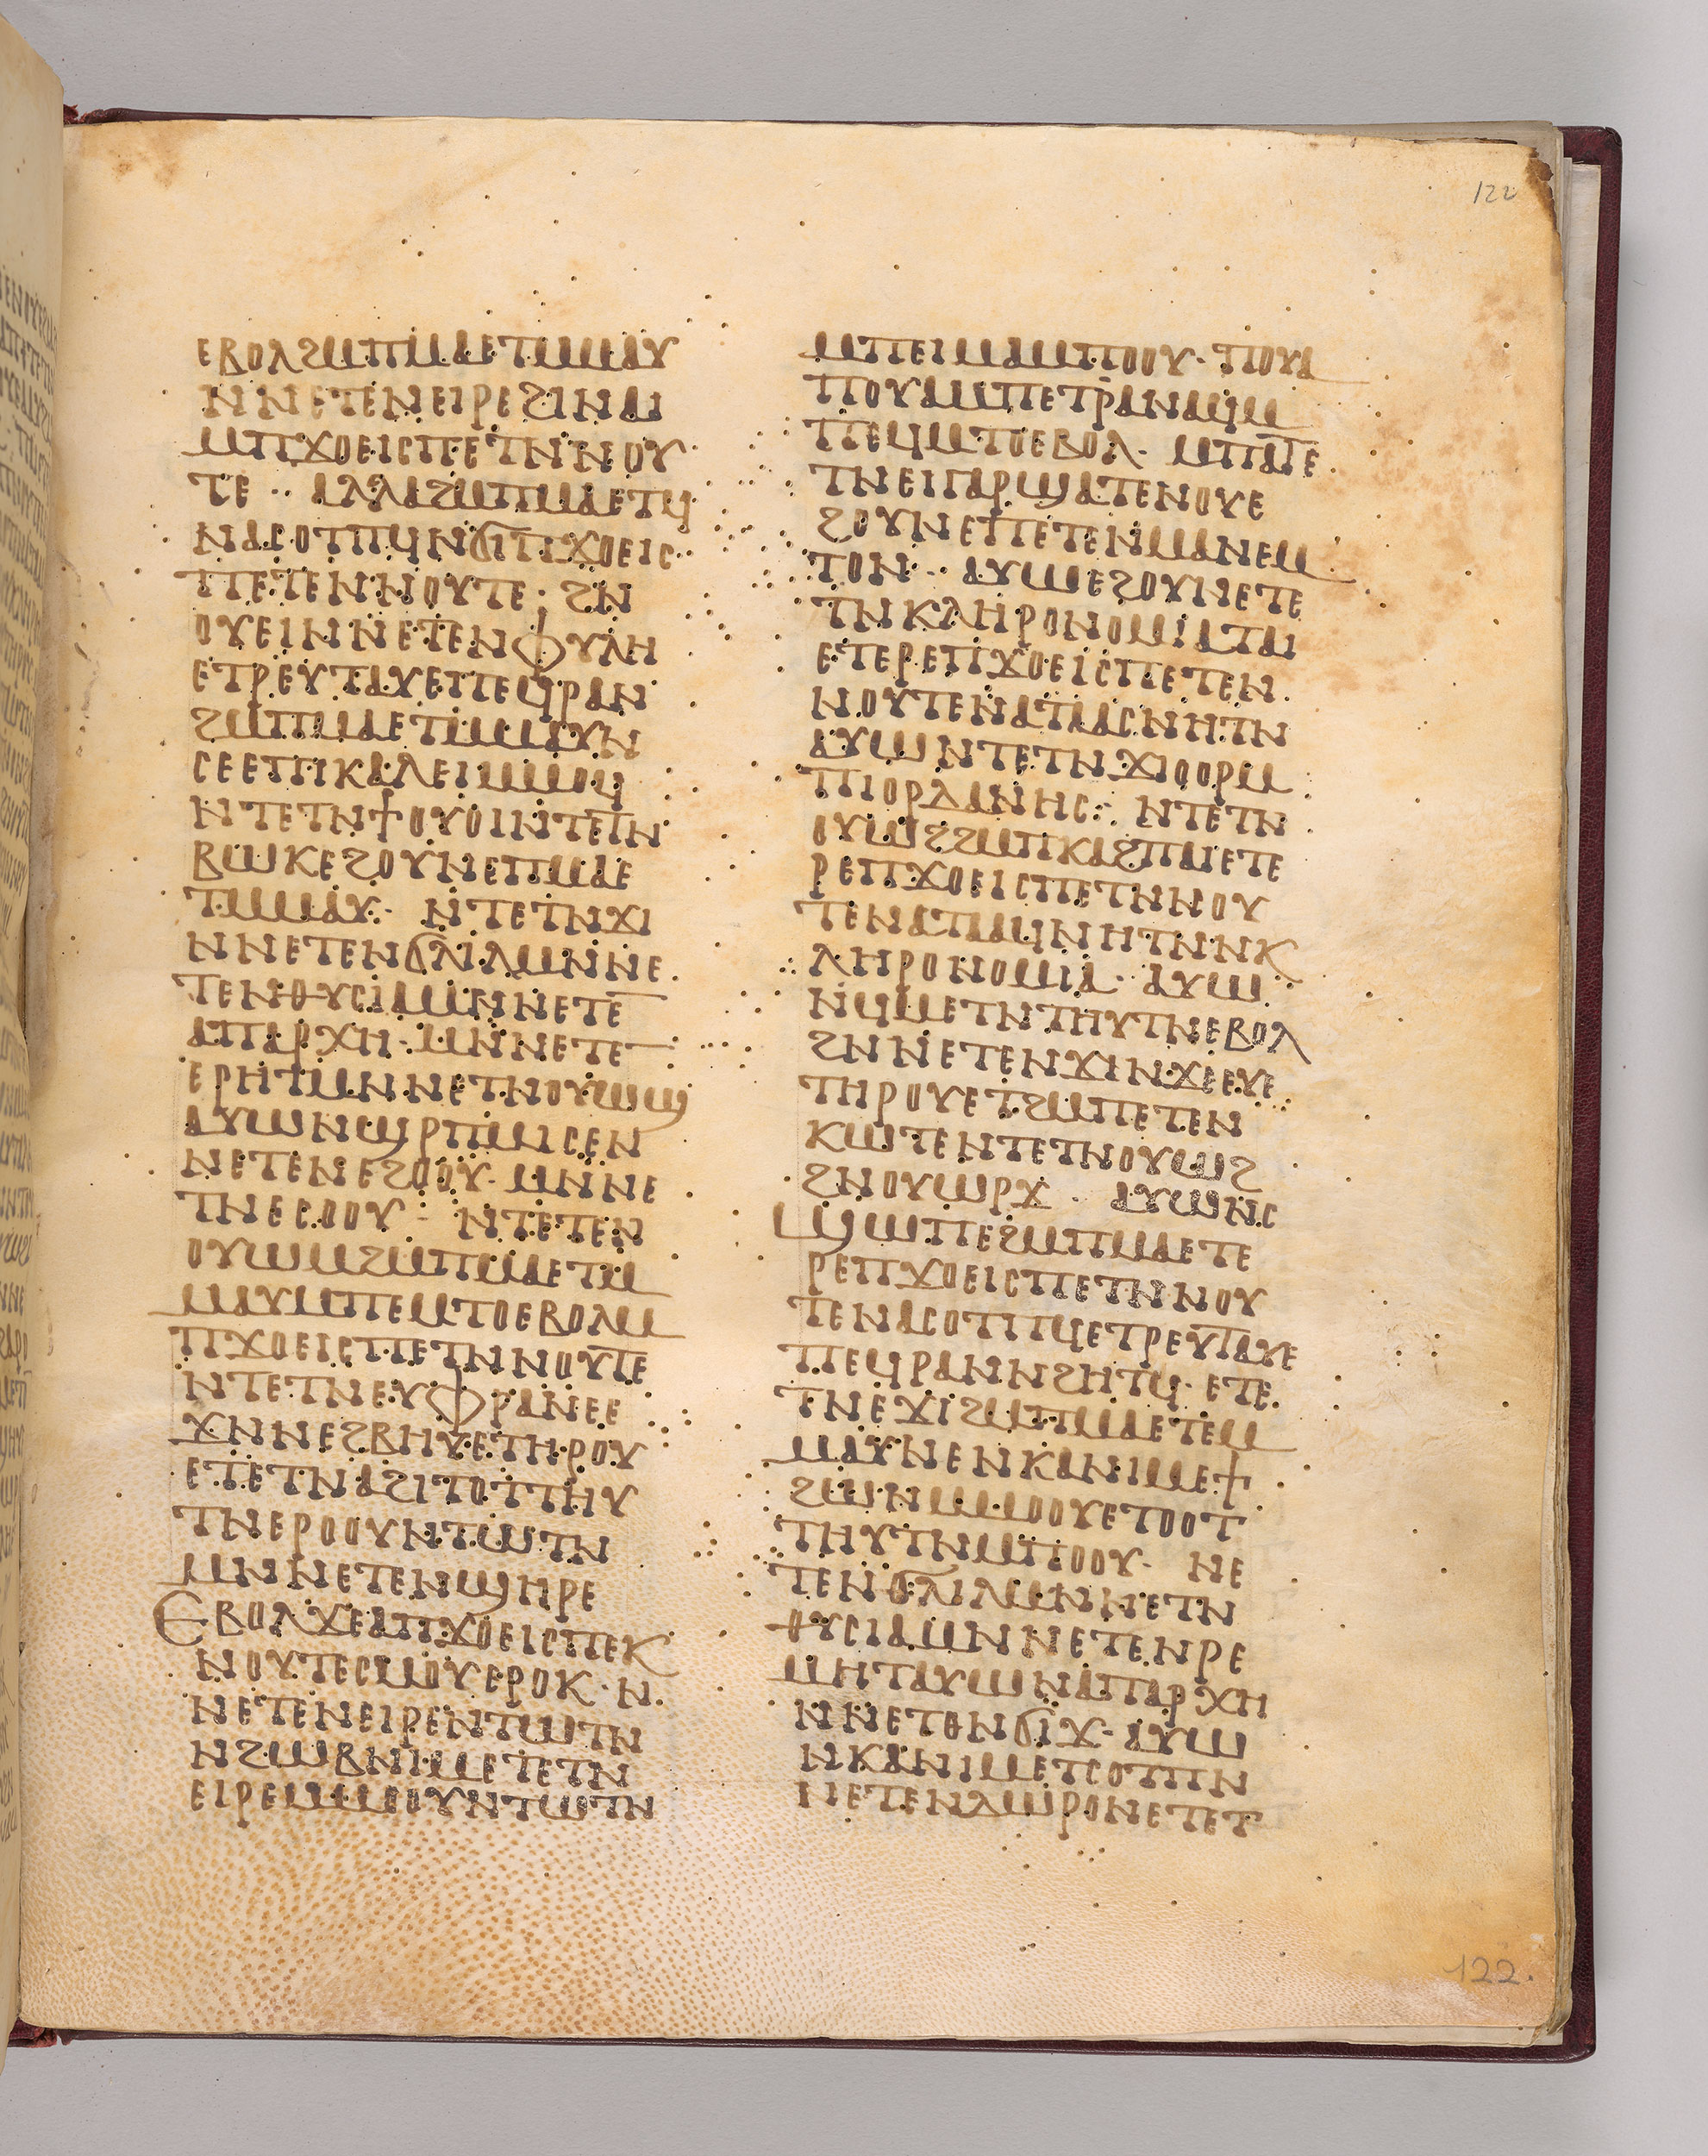 122
ⲉⲃⲟⲗϩⲙⲡⲙⲁⲉⲧⲙⲙⲁⲩ
ⲛⲛⲉⲧⲉⲛⲉⲓⲣⲉϩⲓⲛⲁⲓ
ⲙⲡϫⲟⲉⲓⲥⲡⲉⲧⲛⲛⲟⲩ
ⲧⲉ ·· ⲁⲗⲗⲁϩⲙⲡⲙⲁⲉⲧϥ
ⲛⲁⲥⲟⲧⲡϥⲛϭⲓⲡϫⲟⲉⲓⲥ
ⲡⲉⲧⲉⲛⲛⲟⲩⲧⲉ : ϩⲛ
ⲟⲩⲉⲓⲛⲛⲉⲧⲉⲛⲫⲩⲗⲏ
ⲉⲧⲣⲉⲩⲧⲁⲩⲉⲡⲉϥⲣⲁⲛ
ϩⲙⲡⲙⲁⲉⲧⲙⲙⲁⲩⲛ
ⲥⲉⲉⲡⲓⲕⲁⲗⲉⲓⲙⲙⲟϥ
ⲛⲧⲉⲧⲛϯⲟⲩⲟⲓⲛⲧⲉⲧⲛ
ⲃⲱⲕⲉϩⲟⲩⲛⲉⲡⲙⲁⲉ
ⲧⲙⲙⲁⲩ · ⲛⲧⲉⲧⲛϫⲓ
ⲛⲛⲉⲧⲉⲛϭⲗⲓⲗⲙⲛⲛⲉ
ⲧⲉⲛⲑⲩⲥⲓⲁⲙⲛⲛⲉⲧⲉ
ⲁⲡⲁⲣⲭⲏ · ⲙⲛⲛⲉⲧⲉ
ⲉⲣⲏⲧⲙⲛⲛⲉⲧⲛⲟⲩⲱϣ
ⲁⲩⲱⲛϣⲣⲡⲙⲓⲥⲉⲛ
ⲛⲉⲧⲉⲛⲉϩⲟⲟⲩ · ⲙⲛⲛⲉ
ⲧⲛⲉⲥⲟⲟⲩ · ⲛⲧⲉⲧⲉⲛ
ⲟⲩⲱⲙϩⲙⲡⲙⲁⲉⲧⲙ
ⲙⲁⲩⲙⲡⲉⲙⲧⲟⲉⲃⲟⲗⲙ
ⲡϫⲟⲉⲓⲥⲡⲉⲧⲛⲛⲟⲩⲧⲉ
ⲛⲧⲉⲧⲛⲉⲩⲫⲣⲁⲛⲉⲉ
ϫⲛⲛⲉϩⲃⲏⲩⲉⲧⲏⲣⲟⲩ
ⲉⲧⲉⲧⲛⲁϩⲓⲧⲟⲧⲧⲏⲩ
ⲧⲛⲉⲣⲟⲟⲩⲛⲧⲱⲧⲛ
ⲙⲛⲛⲉⲧⲉⲛϣⲏⲣⲉ
ⲉⲃⲟⲗϫⲉⲁⲡϫⲟⲉⲓⲥⲡⲉⲕ
ⲛⲟⲩⲧⲉⲥⲙⲟⲩⲉⲣⲟⲕ · ⲛ
ⲛⲉⲧⲉⲛⲉⲓⲣⲉⲛⲧⲱⲧⲛ
ⲛϩⲱⲃⲛⲓⲙⲉⲧⲉⲧⲛ
ⲉⲓⲣⲉⲙⲙⲟⲟⲩⲛⲧⲱⲧⲛ
ⲙⲡⲉⲓⲙⲁⲙⲡⲟⲟⲩ · ⲡⲟⲩⲁ
ⲡⲟⲩⲁⲙⲡⲉⲧⲣⲁⲛⲁϥⲙ
ⲡⲉϥⲙⲧⲟⲉⲃⲟⲗ · ⲙⲡⲁⲧⲉ
ⲧⲛⲉⲓⲅⲁⲣϣⲁⲧⲉⲛⲟⲩⲉ
ϩⲟⲩⲛⲉⲡⲉⲧⲉⲛⲙⲁⲛⲉⲙ
ⲧⲟⲛ ·· ⲁⲩⲱⲉϩⲟⲩⲛⲉⲧⲉ
ⲧⲛⲕⲗⲏⲣⲟⲛⲟⲙⲓⲁⲧⲁⲓ
ⲉⲧⲉⲣⲉⲡϫⲟⲉⲓⲥⲡⲉⲧⲉⲛ
ⲛⲟⲩⲧⲉⲛⲁⲧⲁⲁⲥⲛⲏⲧⲛ
ⲁⲩⲱⲛⲧⲉⲧⲛϫⲓⲟⲟⲣⲙ
ⲡⲓⲟⲣⲇⲁⲛⲏⲥ : ⲛⲧⲉⲧⲛ
ⲟⲩⲱϩϩⲙⲡⲕⲁϩⲡⲁⲓⲉⲧⲉ
ⲣⲉⲡϫⲟⲉⲓⲥⲡⲉⲧⲛⲛⲟⲩ
ⲧⲉⲛⲁⲧⲁⲁϥⲛⲏⲧⲛⲛⲕ
ⲗⲏⲣⲟⲛⲟⲙⲓⲁ · ⲁⲩⲱ
ⲛϥⲙⲉⲧⲛⲧⲏⲩⲧⲛⲉⲃⲟⲗ
ϩⲛⲛⲉⲧⲉⲛϫⲓⲛϫⲉⲉⲩⲉ
ⲧⲏⲣⲟⲩⲉⲧϩⲙⲡⲉⲧⲉⲛ
ⲕⲱⲧⲉⲛⲧⲉⲧⲛⲟⲩⲱϩ
ϩⲛⲟⲩⲱⲣϫ · ⲁⲩⲱⲛⲥ
ϣⲱⲡⲉϩⲙⲡⲙⲁⲉⲧⲉ
ⲣⲉⲡϫⲟⲉⲓⲥⲡⲉⲧⲛⲛⲟⲩ
ⲧⲉⲛⲁⲥⲟⲧⲡϥⲉⲧⲣⲉⲩⲧⲁⲩⲉ
ⲡⲉϥⲣⲁⲛⲛϩⲏⲧϥ · ⲉⲧⲉ
ⲧⲛⲉϫⲓϩⲙⲡⲙⲁⲉⲧⲉⲙ
ⲙⲁⲩⲛⲉⲛⲕⲁⲛⲓⲙⲉϯ
ϩⲱⲛⲙⲙⲟⲟⲩⲉⲧⲟⲟⲧ
ⲧⲏⲩⲧⲛⲙⲡⲟⲟⲩ · ⲛⲉ
ⲧⲉⲛϭⲗⲓⲗⲙⲛⲛⲉⲧⲛ
ⲑⲩⲥⲓⲁⲙⲛⲛⲉⲧⲉⲛⲣⲉ
ⲙⲏⲧⲁⲩⲱⲛⲁⲡⲁⲣⲭⲏ
ⲛⲛⲉⲧⲉⲛϭⲓϫ · ⲁⲩⲱ
ⲛⲕⲁⲛⲓⲙⲉⲧⲥⲟⲧⲡⲛ
ⲛⲉⲧⲉⲛⲇⲱⲣⲟⲛⲉⲧⲉⲧ
122.